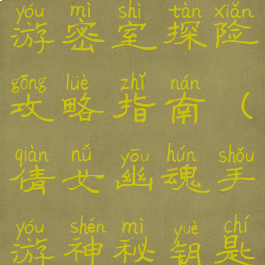 yóu mì shì tàn xiǎn
游密室探险
gōng lüè zhǐ nán
攻略指南（
qiàn nǚ yōu hún shǒu
倩女幽魂手
yóu shén mì yuè chí
游神秘钥匙